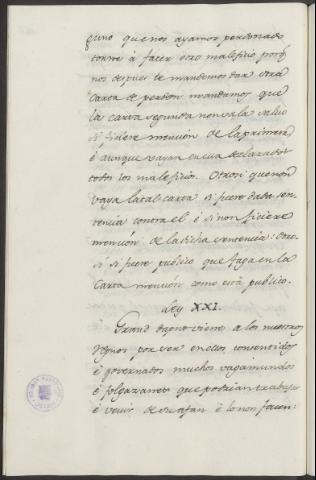 guno que nos ayamos perdonado
torne à facer otro maleficio porq̃
nos despues le mandemos dar otra
carta de perdon mandamos que
la carta segunda non vala salvo
si ficiere mencion de la primera
è aunque vayan en ella declarados
todos los maleficios. Otrosi que non
vaya la tal carta si fuere dada sen-
tencia contra el è si non ficiere
mencion de la dicha sentencia: Otro-
si si fuere publico que faga en la
Carta mencion como està publico.
Ley XXI.
Grand daño viene a los nuestros
Regnos por ser en ellos consentidos
è governados muchos vagamundos
è folgazanes que podrian trabajar
è vevir de su afan è lo non facen: